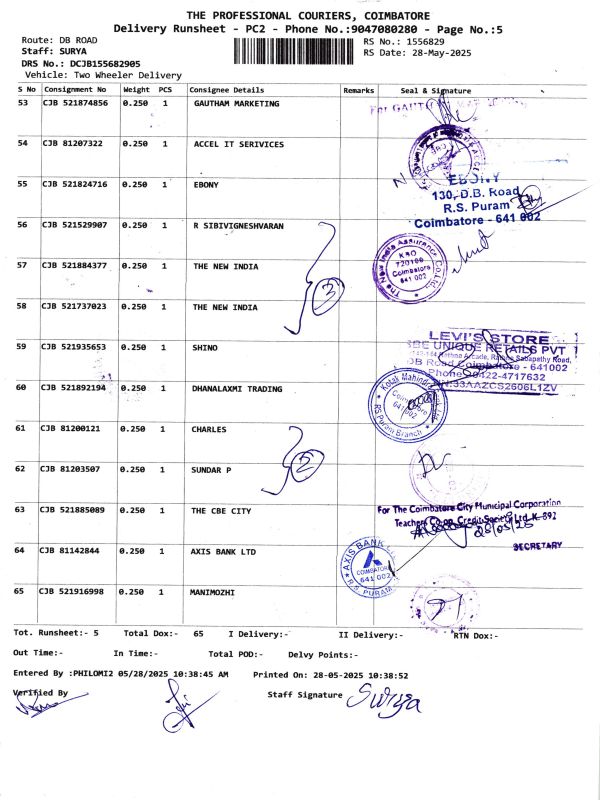 THE PROFESSIONAL COURIERS, COIMBATORE
Delivery Runsheet - PC2 - Phone No.:9047080280 - Page No.:5
Route: DB ROAD
RS No.: 1556829
Staff: SURYA
RS Date: 28-May-2025
DRS No.: DCJB155682905
Vehicle: Two Wheeler Delivery
S No Consignment No Weight PCS Consignee Details Remarks Seal & Signature
53 CJB 521874856 0.250 1 GAUTHAM MARKETING
54 CJB 81207322 0.250 1 ACCEL IT SERIVICES
55 CJB 521824716 0.250 1 EBONY
EBONY
130, D.B. Road
R.S. Puram
Coimbatore - 641 002
56 CJB 521529907 0.250 1 R SIBIVIGNESHVARAN
57 CJB 521884377 0.250 1 THE NEW INDIA
The New India Assurance Co.Ltd.
KRO
720100
Coimbatore
641 002
3
58 CJB 521737023 0.250 1 THE NEW INDIA
59 CJB 521935653 0.250 1 SHINO
LEVI'S STORE
UNIQUE RETAILS PVT
DB Road Coimbatore - 641002
Phone 0422-4717632
33AAZCS2606L1ZV
60 CJB 521892194 0.250 1 DHANALAXMI TRADING
Kotak Mahindra
Coimbatore
641 002
RS Puram Branch
61 CJB 81200121 0.250 1 CHARLES
2
62 CJB 81203507 0.250 1 SUNDAR P
63 CJB 521885089 0.250 1 THE CBE CITY
For The Coimbatore City Municipal Corporation
Teachers Co-op. Credit Society Ltd. K 892
28/05/25
SECRETARY
64 CJB 81142844 0.250 1 AXIS BANK LTD
AXIS BANK
COIMBATORE
641 002
R.S. PURAM
65 CJB 521916998 0.250 1 MANIMOZHI
Tot. Runsheet:- 5 Total Dox:- 65 I Delivery:- II Delivery:- RTN Dox:-
Out Time:- In Time:- Total POD:- Delvy Points:-
Entered By :PHILOMI2 05/28/2025 10:38:45 AM Printed On: 28-05-2025 10:38:52
Verified By Staff Signature Surya